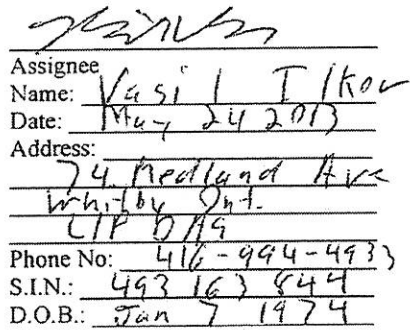 Assignee
Name: Vasil Ilkov
Date: May 24 2013
Address:
74 Medland Ave
Whitby Ont.
L1P
Phone No: 416-994-4933
S.I.N.: 493 163 844
D.O.B.: Jan 7 1974